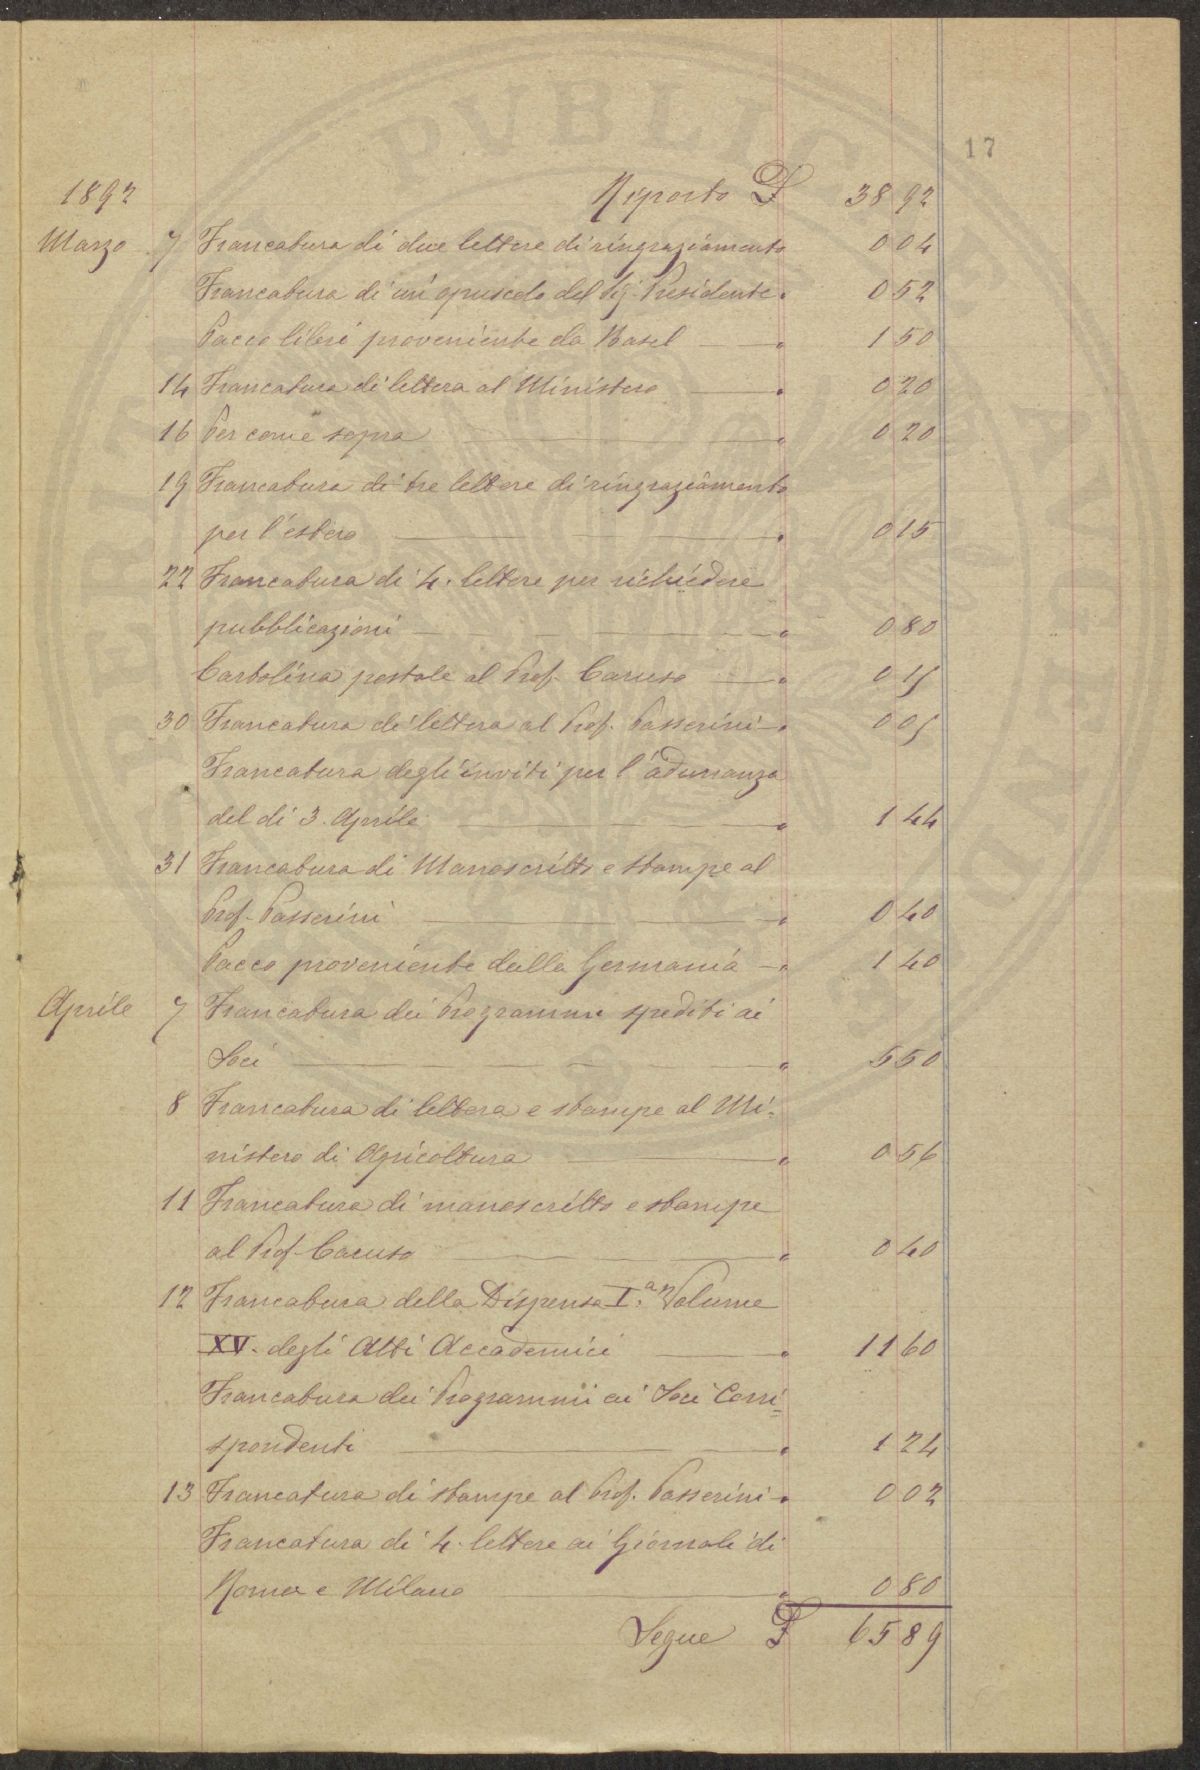 PVBLICAE
17
1892 Riporto £ 38 92
Marzo 7 Francatura di due lettere di ringraziamento 0 04
Francatura di un'opuscolo del Sig. Presidente " 0 52
Pacco libri proveniente da Basel " 1 50
14 Francatura di lettera al Ministero " 0 20
16 Per come sopra " 0 20
19 Francatura di tre lettere di ringraziamento
per l'estero " 0 15
22 Francatura di 4. lettere per richiedere
pubblicazioni " 0 80
Cartolina postale al Prof. Caruso " 0 15
30 Francatura di lettera al Prof. Passerini " 0 05
Francatura degli inviti per l'adunanza
del di 3. Aprile " 1 44
31 Francatura di Manoscritto e stampe al
Prof. Passerini " 0 40
Pacco proveniente dalla Germania " 1 40
Aprile 7 Francatura dei Programmi spediti ai
Soci " 5 50
8 Francatura di lettera e stampe al Mi=
nistero di Agricoltura " 0 56
11 Francatura di manoscritto e stampe
al Prof. Caruso " 0 40
12 Francatura della Dispensa I.a Volume
XV. degli Atti Accademici " 11 60
Francatura dei Programmi ai Soci Corri=
spondenti " 1 24
13 Francatura di stampe al Prof. Passerini " 0 02
Francatura di 4. lettere ai Giornali di
Roma e Milano " 0 80
Segue £ 65 89